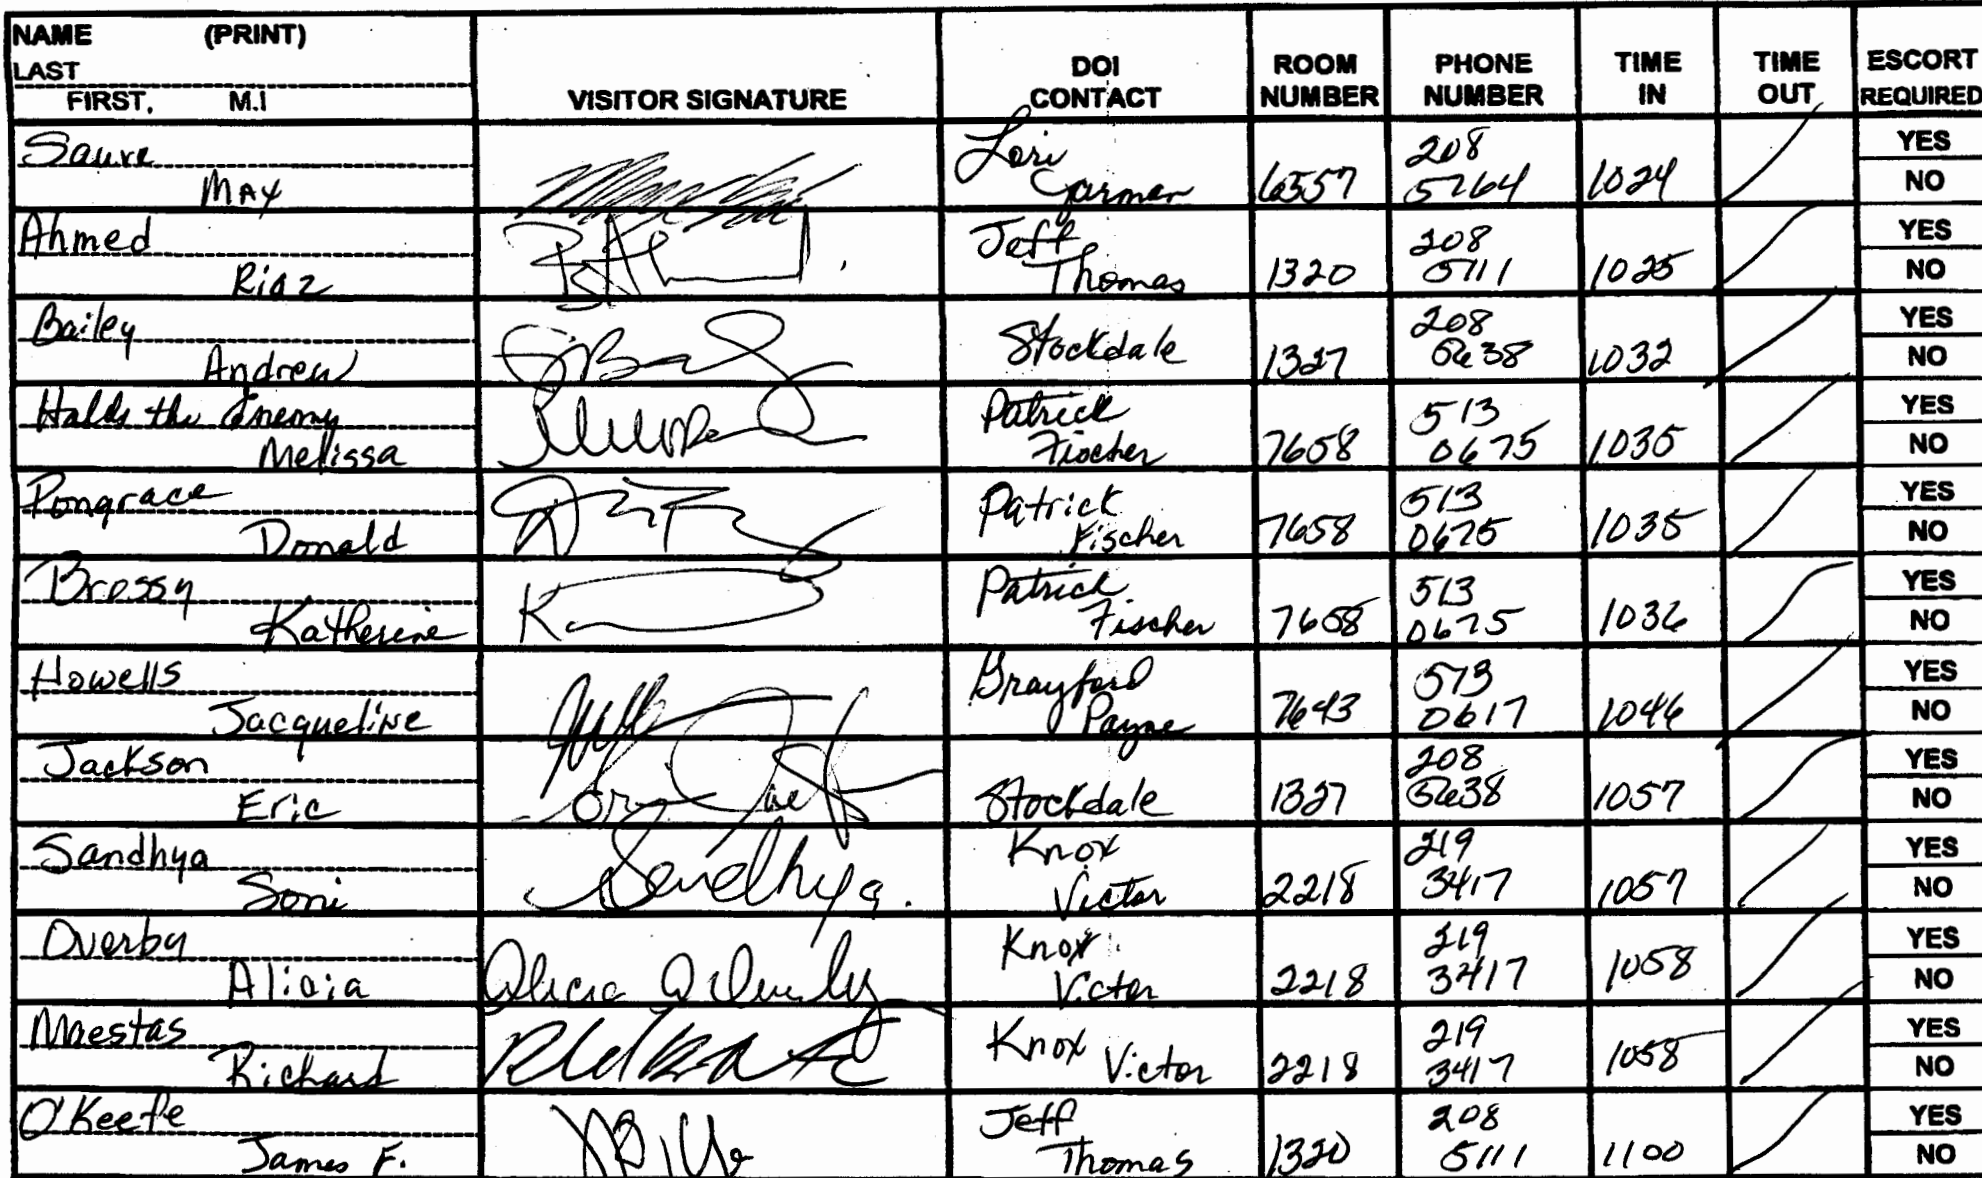 NAME (PRINT)
LAST
FIRST, M.I
VISITOR SIGNATURE
DOI
CONTACT
ROOM
NUMBER
PHONE
NUMBER
TIME
IN
TIME
OUT
ESCORT
REQUIRED
Sauve
MAX
Lori
Garman
6557
208
5764
1024
YES
NO
Ahmed
Riaz
Jeff
Thomas
1320
208
5111
1025
YES
NO
Bailey
Andrew
Stockdale
1327
208
5638
1032
YES
NO
Halds the Enemy
Melissa
Patrick
Fischer
7658
513
0675
1035
YES
NO
Pongrace
Donald
Patrick
Fischer
7658
513
0675
1035
YES
NO
Brossy
Katherine
Patrick
Fischer
7658
513
0675
1036
YES
NO
Howells
Jacqueline
Brayford
Payne
7643
513
0617
1046
YES
NO
Jackson
Eric
Stockdale
1327
208
5638
1057
YES
NO
Sandhya
Soni
Sandhya.
Knox
Victor
2218
219
3417
1057
YES
NO
Overby
Alicia
Alicia Overby
Knox
Victor
2218
219
3417
1058
YES
NO
Maestas
Richard
Knox Victor
2218
219
3417
1058
YES
NO
O'Keefe
James F.
Jeff
Thomas
1320
208
5111
1100
YES
NO